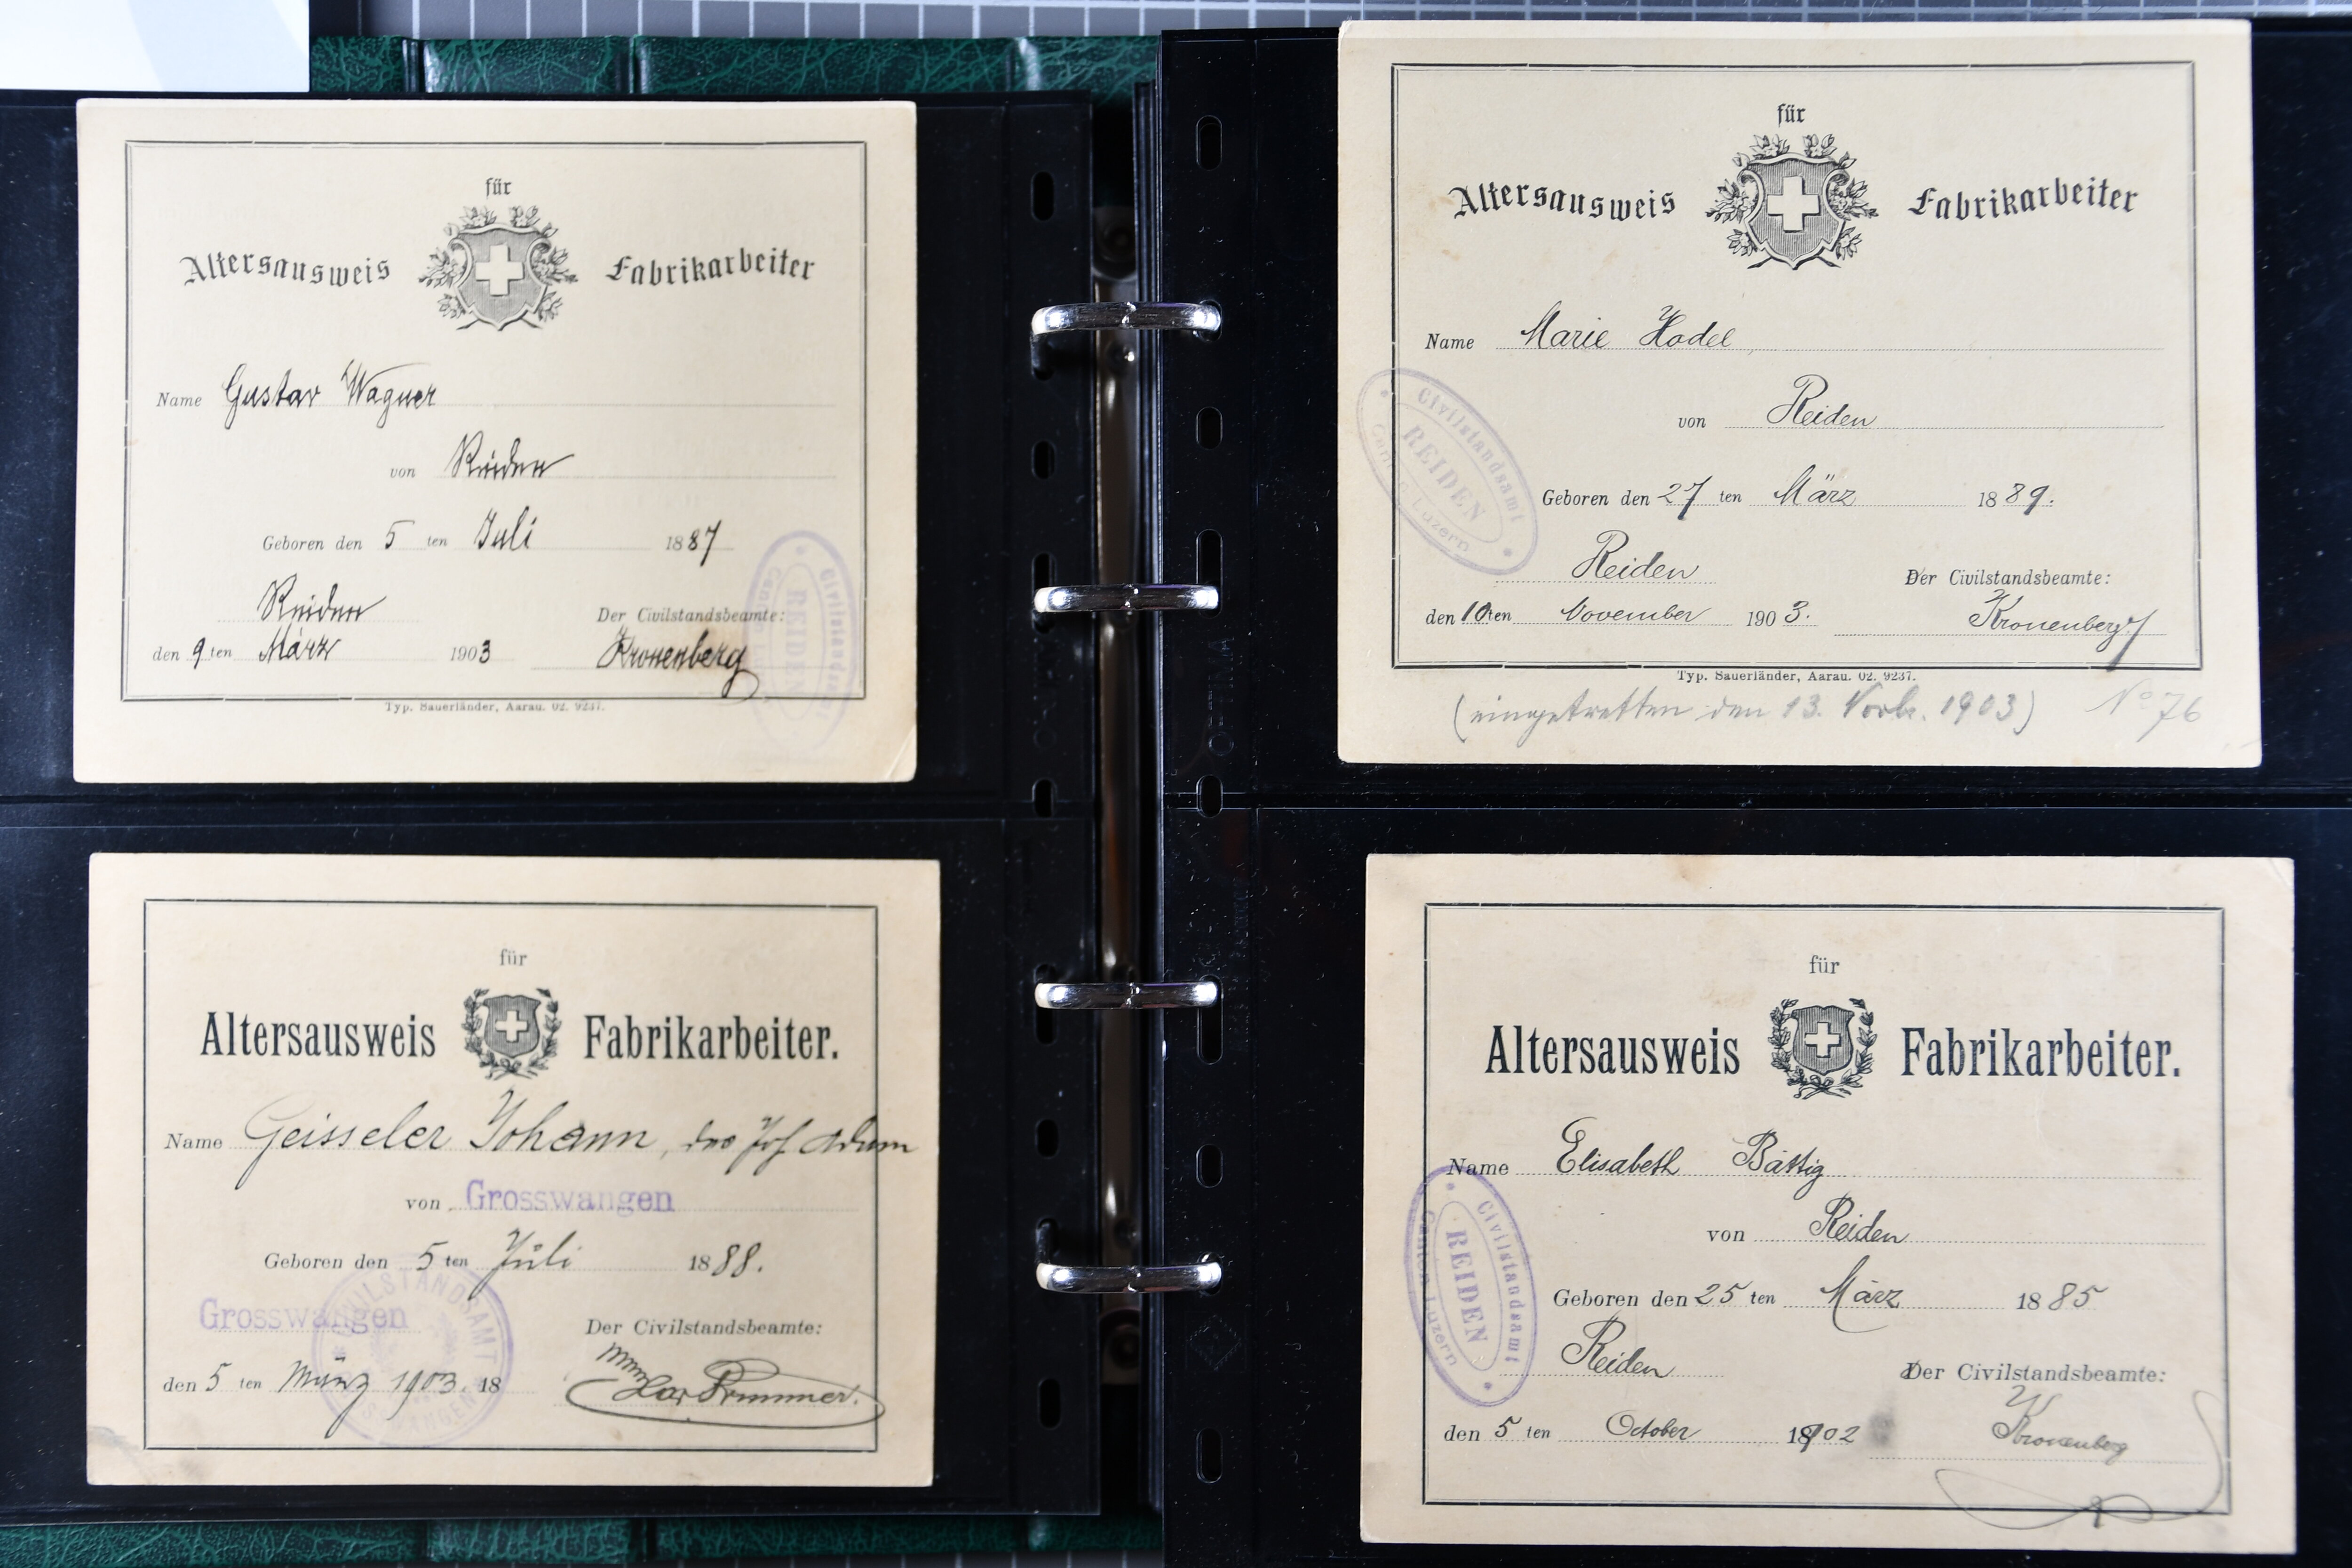 für
Altersausweis Fabrikarbeiter
Name Gustav Wagner
von Reiden
Geboren den 5 ten Juli 1887
Reiden
Der Civilstandsbeamte:
den 9 ten März 1903 Kronenberg
Civilstandsamt
REIDEN
Typ. Sauerländer, Aarau. 02. 9237.
für
Altersausweis Fabrikarbeiter.
Name Geisseler Johann, des Jos Adam
von Grosswangen
Geboren den 5 ten Juli 1888.
Grosswangen
Der Civilstandsbeamte:
den 5 ten März 1903. 18
CIVILSTANDSAMT
für
Altersausweis Fabrikarbeiter
Name Marie Hodel
von Reiden
Civilstandsamt
REIDEN
Canton Luzern
Geboren den 27 ten März 1889.
Reiden
Der Civilstandsbeamte:
den 10 ten November 1903. Kronenberg
Typ. Sauerländer, Aarau. 02. 9237.
(eingetretten den 13. Novbr. 1903) No 76
für
Altersausweis Fabrikarbeiter.
Name Elisabeth Bättig
von Reiden
Civilstandsamt
REIDEN
Canton Luzern
Geboren den 25 ten März 1885
Reiden
Der Civilstandsbeamte:
den 5 ten October 1902 Kronenberg